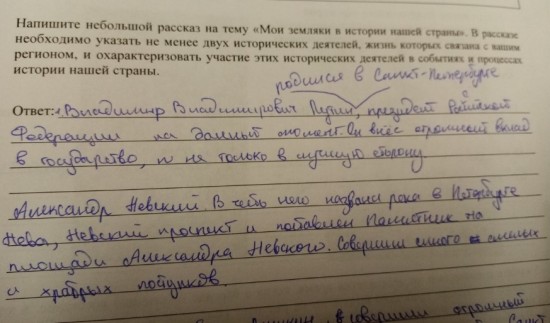 Напишите небольшой рассказ на тему «Мои земляки в истории нашей страны». В рассказе
необходимо указать не менее двух исторических деятелей, жизнь которых связана с вашим
регионом, и охарактеризовать участие этих исторических деятелей в событиях и процессах
истории нашей страны.
родился в Санкт-Петербурге
Ответ: Владимир Владимирович Путин, президент Российской
Федерации на данный момент. Он внёс огромный вклад
в государство, и не только в лучшую сторону.
Александр Невский. В честь него названа река в Петербурге
Нева, Невский проспект и поставлен памятник на
площади Александра Невского. Совершил много смелых
и храбрых поступков.
в совершил огромный